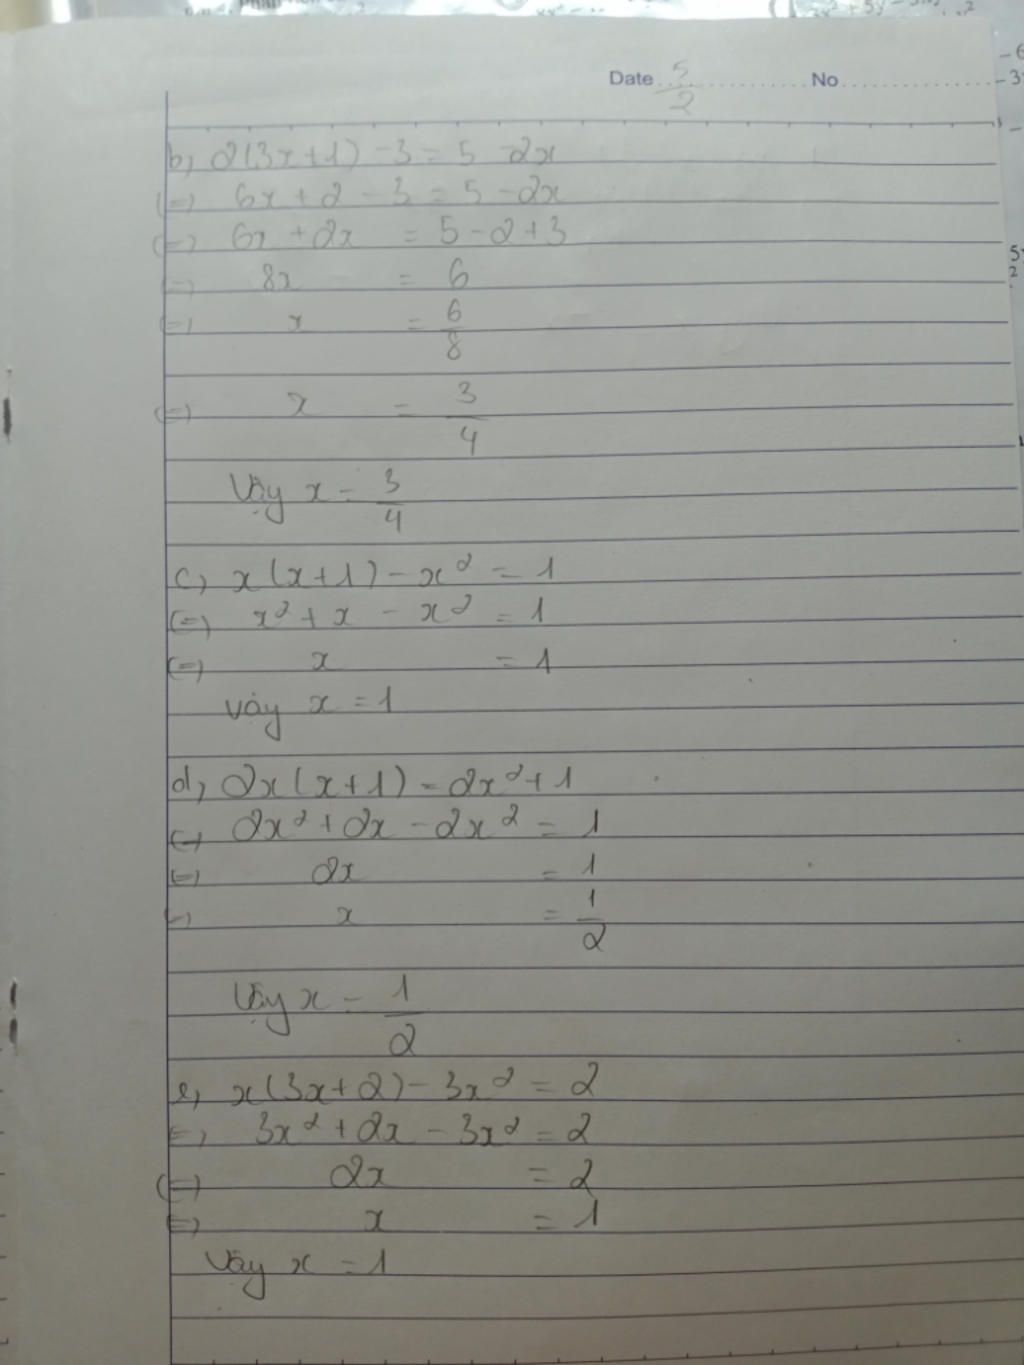 Date 5/2 No
b, 2(3x+1) - 3 = 5 - 2x
(=) 6x + 2 - 3 = 5 - 2x
(=) 6x + 2x = 5 - 2 + 3
(=) 8x = 6
(=) x = 6/8
(=) x = 3/4
Vậy x = 3/4
c, x(x+1) - x² = 1
(=) x² + x - x² = 1
(=) x = 1
Vậy x = 1
d, 2x(x+1) = 2x² + 1
(=) 2x² + 2x - 2x² = 1
(=) 2x = 1
(=) x = 1/2
Vậy x = 1/2
e, x(3x+2) - 3x² = 2
(=) 3x² + 2x - 3x² = 2
(=) 2x = 2
(=) x = 1
Vậy x = 1